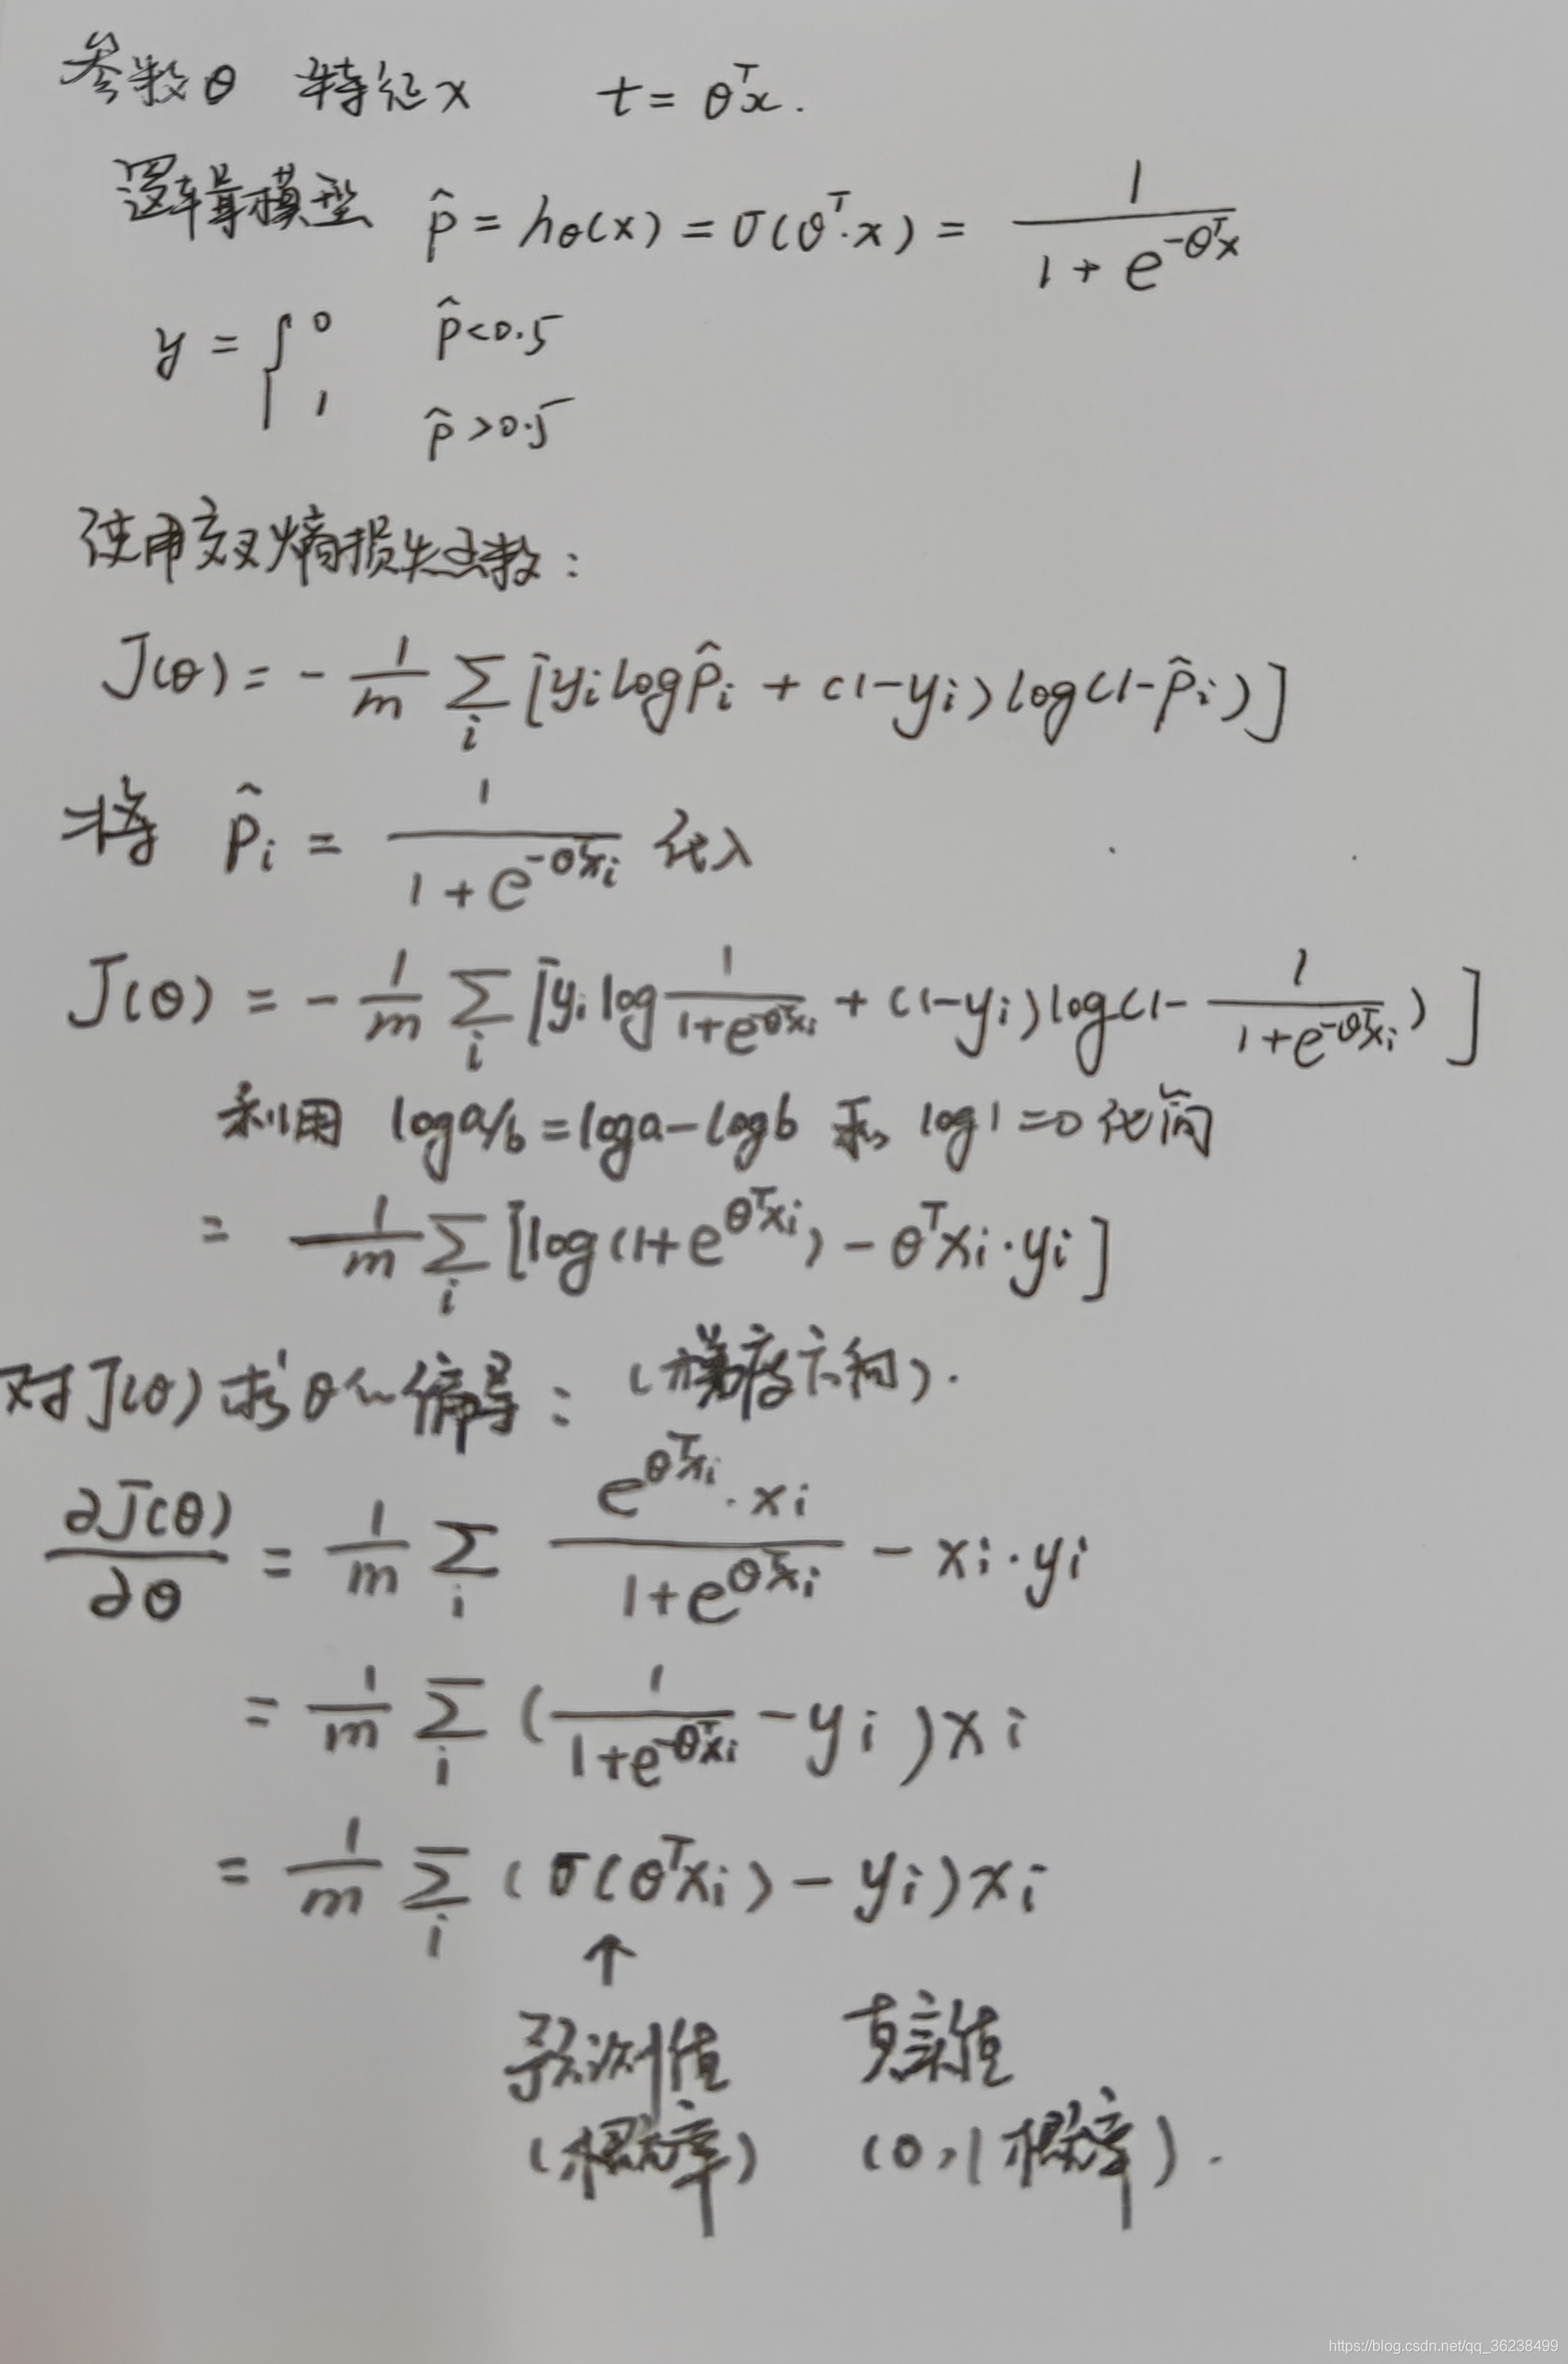 参数θ 特征x t = θᵀx.
逻辑模型 p̂ = hθ(x) = σ(θᵀ·x) = 1/(1 + e^(-θᵀx))
y = { 0 p̂<0.5
1 p̂>0.5
使用交叉熵损失函数:
J(θ) = - 1/m Σᵢ [yᵢ log p̂ᵢ + (1-yᵢ) log(1-p̂ᵢ)]
将 p̂ᵢ = 1/(1 + e^(-θᵀxᵢ)) 代入
J(θ) = - 1/m Σᵢ [yᵢ log 1/(1+e^(-θᵀxᵢ)) + (1-yᵢ) log(1- 1/(1+e^(-θᵀxᵢ)))]
利用 log a/b = log a - log b 和 log 1 = 0 化简
= 1/m Σᵢ [log(1+e^(θᵀxᵢ)) - θᵀxᵢ·yᵢ]
对J(θ)求θ的偏导: (梯度方向).
∂J(θ)/∂θ = 1/m Σᵢ (e^(θᵀxᵢ)·xᵢ)/(1+e^(θᵀxᵢ)) - xᵢ·yᵢ
= 1/m Σᵢ (1/(1+e^(-θᵀxᵢ)) - yᵢ)xᵢ
= 1/m Σᵢ (σ(θᵀxᵢ) - yᵢ)xᵢ
↑
预测值 真实值
(概率) (0,1概率).
https://blog.csdn.net/qq_36238499